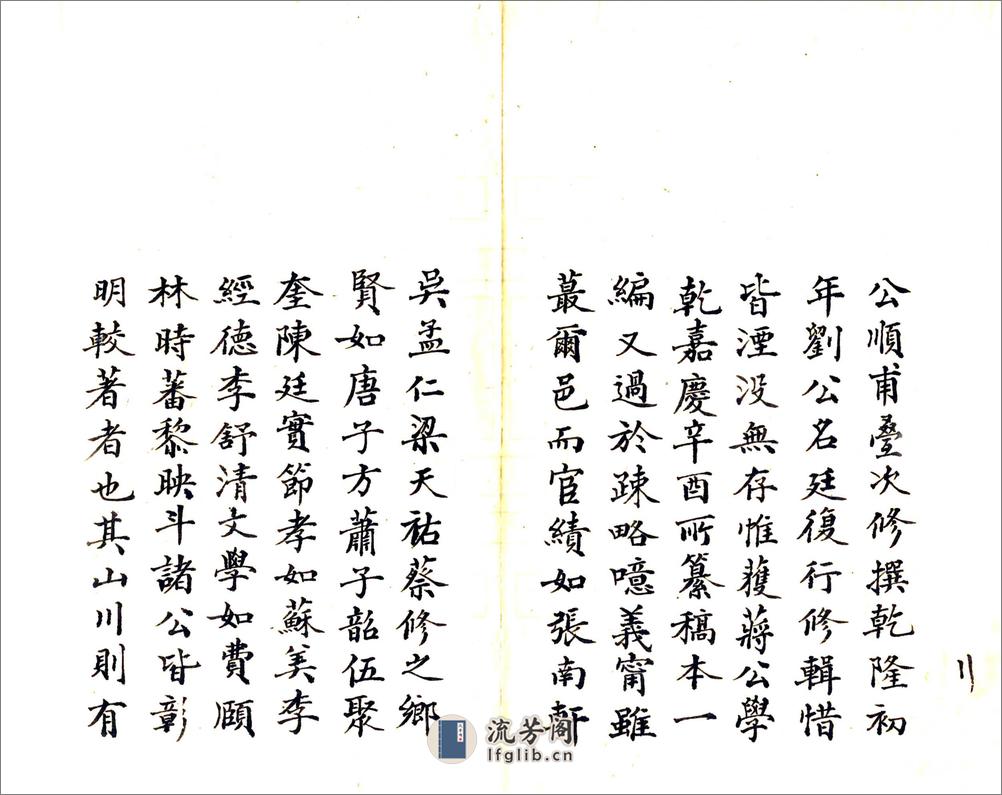 公順甫疊次修撰乾隆初
年劉公名廷復行修輯惜
皆湮没無存惟獲蔣公學
乾嘉慶辛酉所纂稿本一
編又過於踈略噫義甯雖
蕞爾邑而官績如張南軒
吳孟仁梁天祐蔡修之鄉
賢如唐子方蕭子韶伍聚
奎陳廷實節孝如蘇美李
經德李舒清文學如費頤
林時蕃黎映斗諸公皆彰
明較著者也其山川則有
流芳阁
lfglib.cn